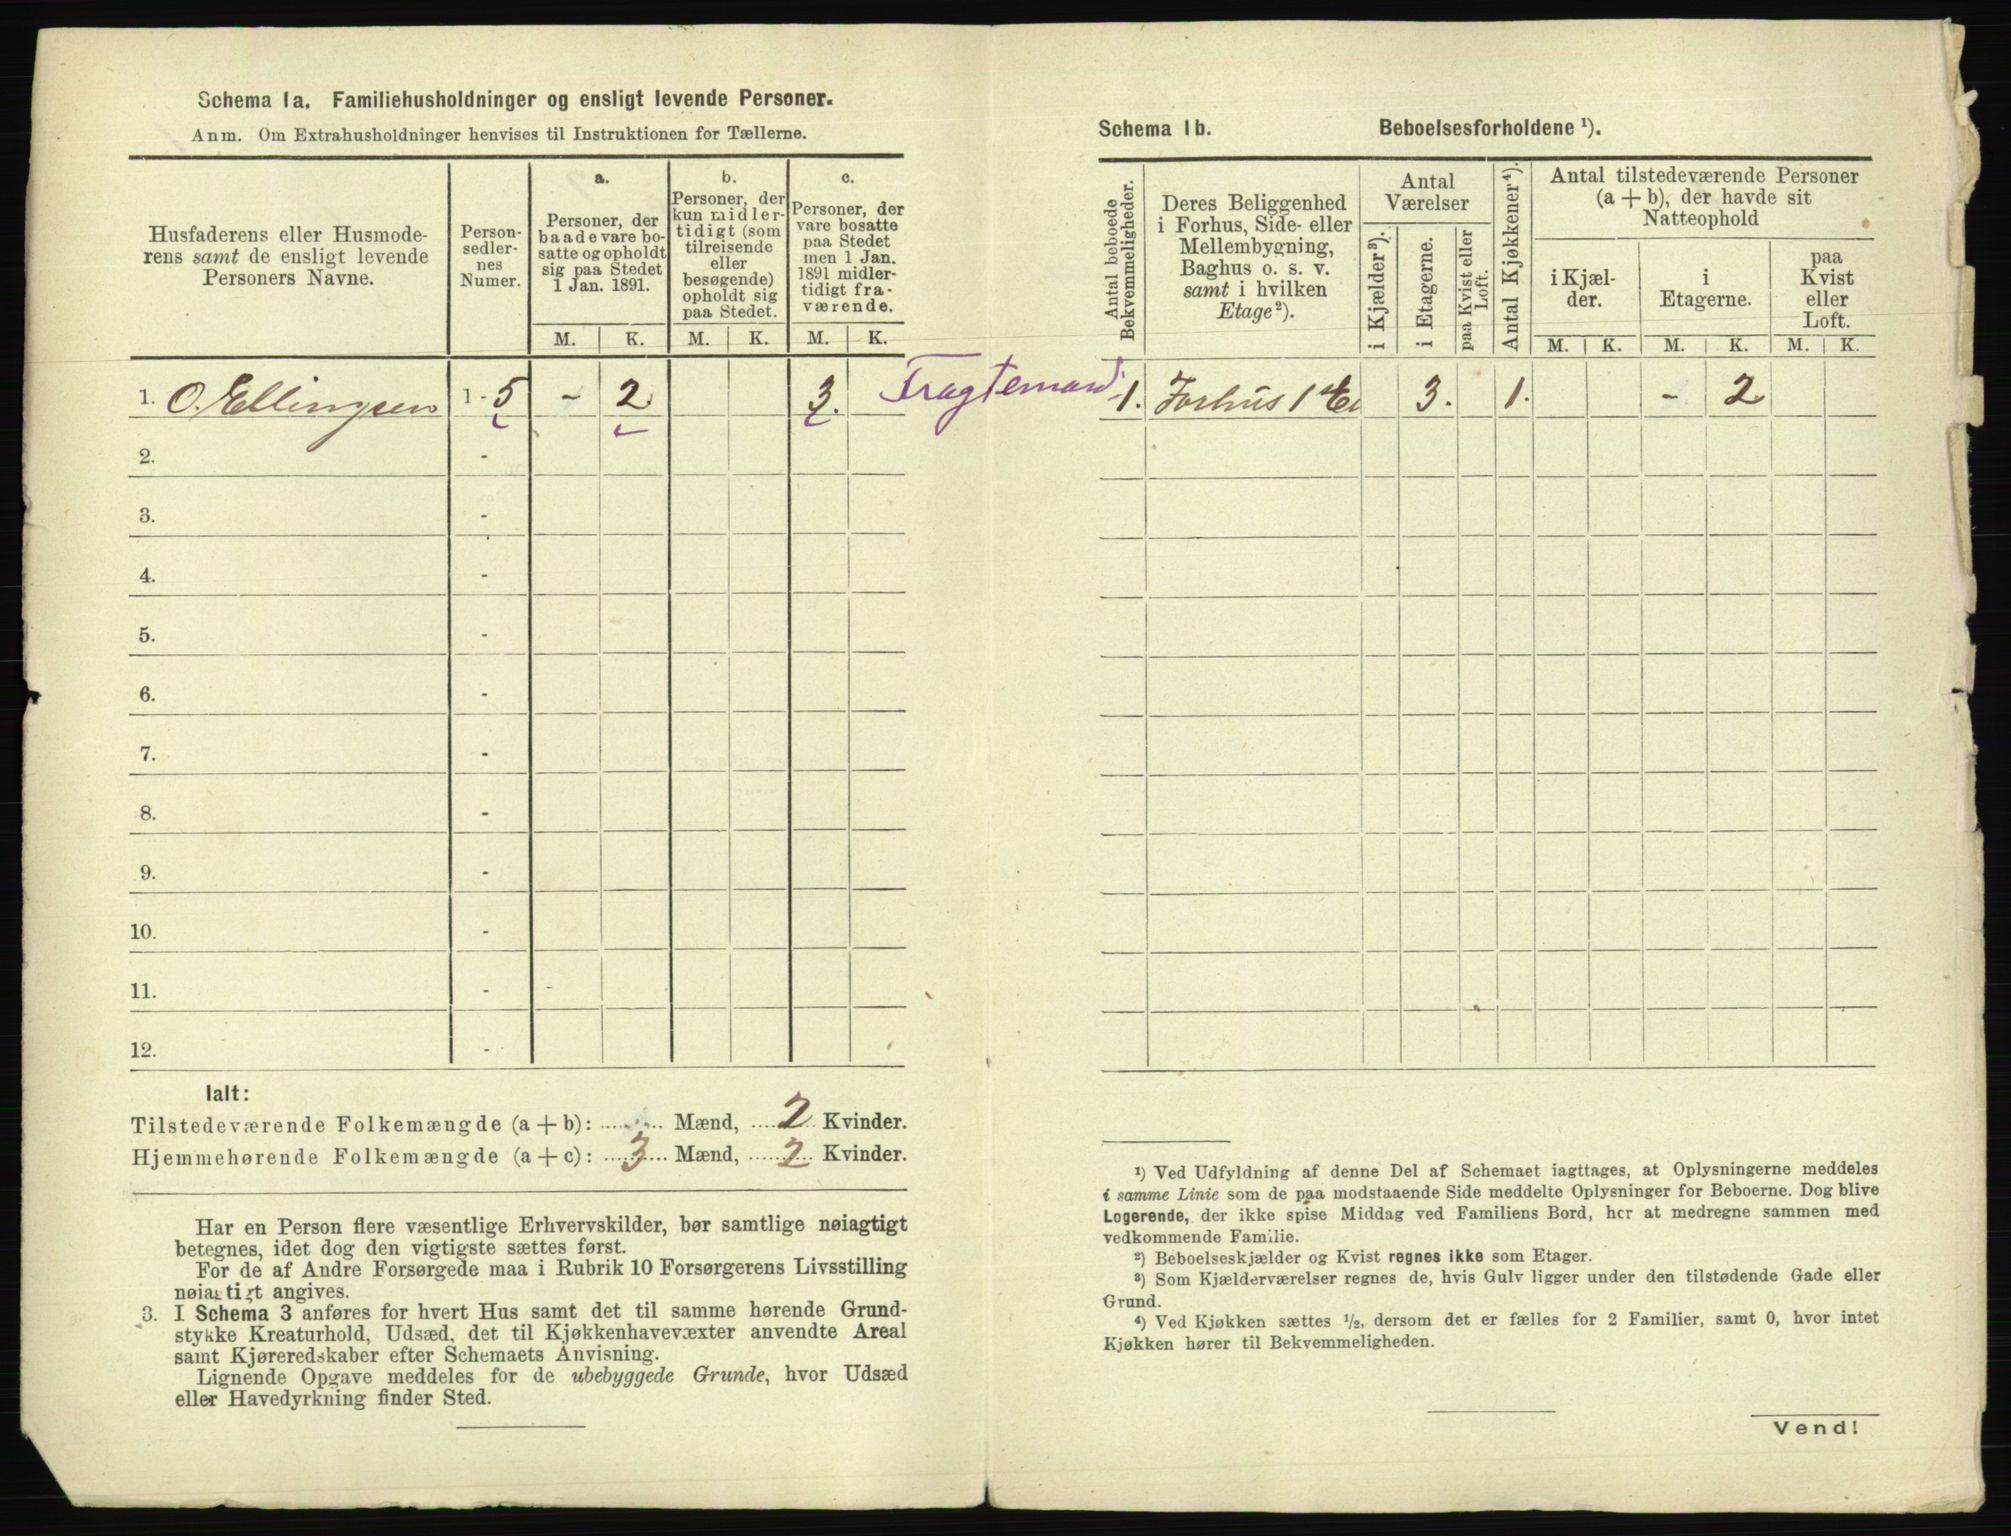 Schema 1a. Familiehusholdninger og ensligt levende Personer.
Anm. Om Extrahusholdninger henvises til Instruktionen for Tællerne.
Husfaderens eller Husmode-
rens samt de ensligt levende
Personers Navne.
Person-
sedler-
nes
Numer.
a.
Personer, der
baade vare bo-
satte og opholdt
sig paa Stedet
1 Jan. 1891.
b.
Personer, der
kun midler-
tidigt (som
tilreisende
eller
besøgende)
opholdt sig
paa Stedet.
c.
Personer, der
vare bosatte
paa Stedet
men 1 Jan.
1891 midler-
tidigt fra-
værende.
M. K. M. K. M. K.
1. O. Ellingsen 1 - 5 - 2 3. Fragtemand
2. -
3. -
4. -
5. -
6. -
7. -
8. -
9. -
10. -
11. -
12. -
Ialt:
Tilstedeværende Folkemængde (a + b): ........ Mænd, ..... 2 Kvinder.
Hjemmehørende Folkemængde (a + c): ..... 3 ..... Mænd, ..... 2 Kvinder.
Har en Person flere væsentlige Erhvervskilder, bør samtlige nøiagtigt
betegnes, idet dog den vigtigste sættes først.
For de af Andre Forsørgede maa i Rubrik 10 Forsørgerens Livsstilling
nøiagtigt angives.
3. I Schema 3 anføres for hvert Hus samt det til samme hørende Grund-
stykke Kreaturhold, Udsæd, det til Kjøkkenhavevæxter anvendte Areal
samt Kjøreredskaber efter Schemaets Anvisning.
Lignende Opgave meddeles for de ubebyggede Grunde, hvor Udsæd
eller Havedyrkning finder Sted.
Schema 1b. Beboelsesforholdene ¹).
Antal beboede
Bekvemmeligheder.
Deres Beliggenhed
i Forhus, Side- eller
Mellembygning,
Baghus o. s. v.
samt i hvilken
Etage ²).
Antal
Værelser
i Kjælder ³).
i Etagerne.
paa Kvist eller
Loft.
Antal Kjøkkener ⁴).
Antal tilstedeværende Personer
(a + b), der havde sit
Natteophold
i Kjæl-
der.
i
Etagerne.
paa
Kvist
eller
Loft.
M. K. M. K. M. K.
1. Forhus 1 Et 3. 1. - 2
¹) Ved Udfyldning af denne Del af Schemaet iagttages, at Oplysningerne meddeles
i samme Linie som de paa modstaaende Side meddelte Oplysninger for Beboerne. Dog blive
Logerende, der ikke spise Middag ved Familiens Bord, her at medregne sammen med
vedkommende Familie.
²) Beboelseskjælder og Kvist regnes ikke som Etager.
³) Som Kjælderværelser regnes de, hvis Gulv ligger under den tilstødende Gade eller
Grund.
⁴) Ved Kjøkken sættes ½, dersom det er fælles for 2 Familier, samt 0, hvor intet
Kjøkken hører til Bekvemmeligheden.
Vend!